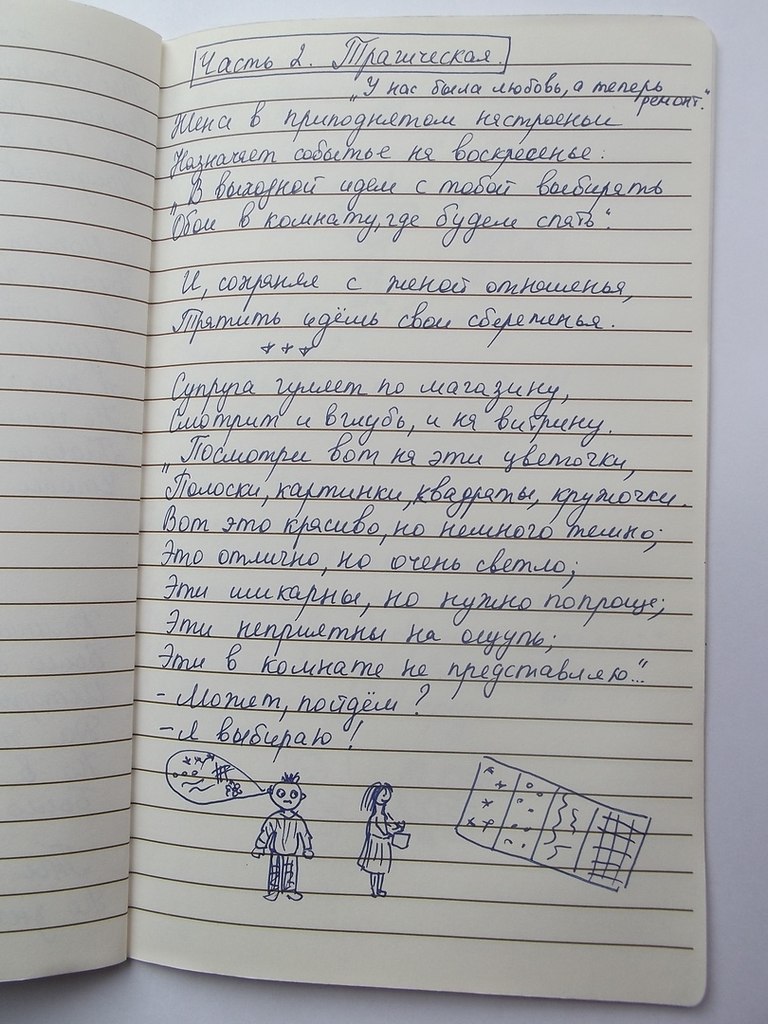 Часть 2. Трагическая.
„У нас была любовь, а теперь
ремонт."
Жена в приподнятом настроеньи
Назначает событье на воскресенье:
„В выходной идем с тобой выбирать
Обои в комнату, где будем спать".
И, сохраняя с женой отношенья,
Тратить идёшь свои сбереженья.
+++
Супруга гуляет по магазину,
Смотрит и вглубь, и на витрину.
„Посмотри вот на эти цветочки,
Полоски, картинки, квадраты, кружочки.
Вот это красиво, но немного темно;
Это отлично, но очень светло;
Эти шикарны, но нужно попроще;
Эти неприятны на ощупь;
Эти в комнате не представляю..."
- Может, пойдём?
- Я выбираю!